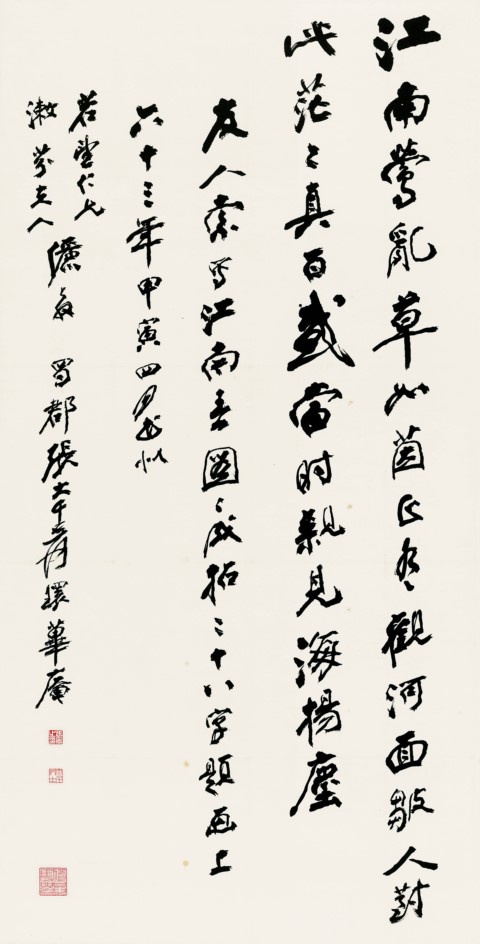 江南鶯亂草如茵觀河面皺人對
此茫々真百感當時親見海揚塵
友人索寫江南春圖々成拓二十八字題画上
六十三年甲寅四月書似
若仁兄
漱芬夫人儷教 蜀郡張大千爰環蓽庵